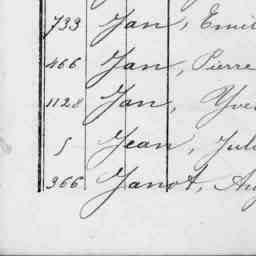 733 Jan, Emil
466 Jan, Pierre
1128 Jan, Yves
5 Jean, Jul
366 Janot, Au